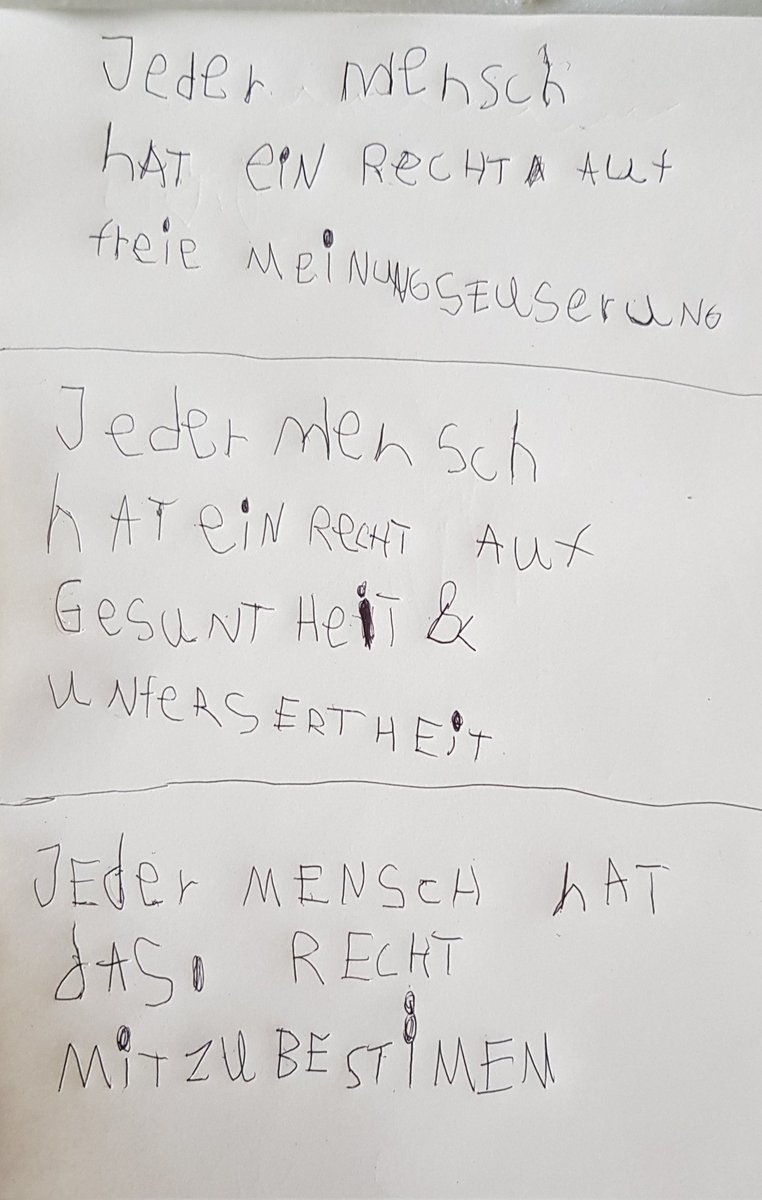 Jeder mensch
hAT eiN ReCHT AUf
freie MeiNUNGSEUserUNG
Jeder mensch
hAT eiN ReCHT AUf
GesUNTHeiT &
UNfeRSERTHEiT
JEder MENScH hAT
dAS RECHT
MiTZUBESTiMEN